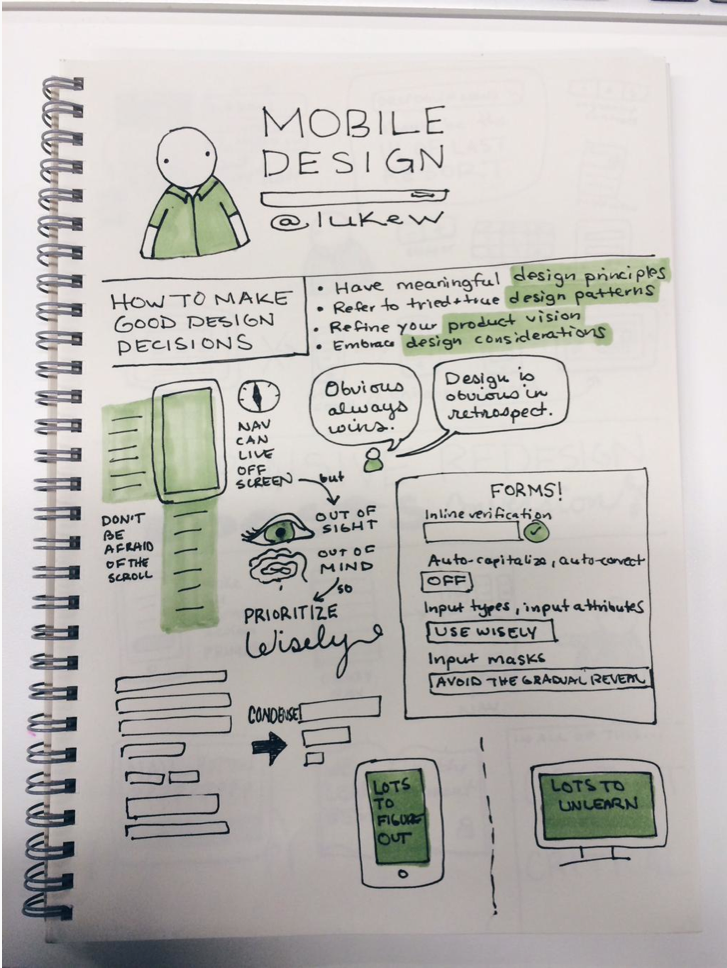 MOBILE
DESIGN
@lukew
HOW TO MAKE
GOOD DESIGN
DECISIONS
• Have meaningful design principles
• Refer to tried+true design patterns
• Refine your product vision
• Embrace design considerations
NAV
CAN
LIVE
OFF
SCREEN
but
OUT OF
SIGHT
OUT OF
MIND
so
PRIORITIZE
Wisely
DON'T
BE
AFRAID
OF THE
SCROLL
Obvious
always
wins.
Design is
obvious in
retrospect.
FORMS!
Inline verification
Auto-capitalize, auto-correct
OFF
Input types, input attributes
USE WISELY
Input masks
AVOID THE GRADUAL REVEAL
CONDENSE
LOTS
TO
FIGURE
OUT
LOTS TO
UNLEARN